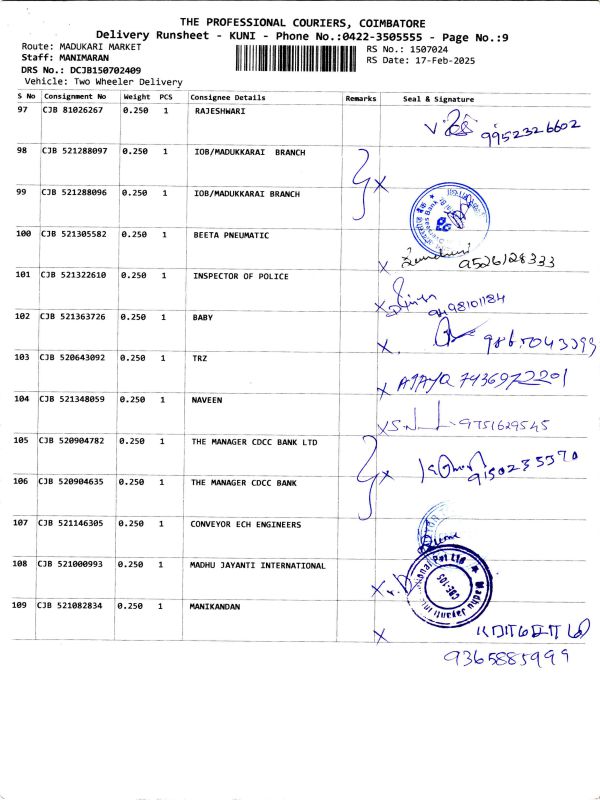 THE PROFESSIONAL COURIERS, COIMBATORE
Delivery Runsheet - KUNI - Phone No.:0422-3505555 - Page No.:9
Route: MADUKARI MARKET RS No.: 1507024
Staff: MANIMARAN RS Date: 17-Feb-2025
DRS No.: DCJB150702409
Vehicle: Two Wheeler Delivery
S No Consignment No Weight PCS Consignee Details Remarks Seal & Signature
97 CJB 81026267 0.250 1 RAJESHWARI
9952326602
98 CJB 521288097 0.250 1 IOB/MADUKKARAI BRANCH
99 CJB 521288096 0.250 1 IOB/MADUKKARAI BRANCH
100 CJB 521305582 0.250 1 BEETA PNEUMATIC
9526128333
101 CJB 521322610 0.250 1 INSPECTOR OF POLICE
9498101184
102 CJB 521363726 0.250 1 BABY
103 CJB 520643092 0.250 1 TRZ
7436972201
104 CJB 521348059 0.250 1 NAVEEN
9751629545
105 CJB 520904782 0.250 1 THE MANAGER CDCC BANK LTD
9150235370
106 CJB 520904635 0.250 1 THE MANAGER CDCC BANK
107 CJB 521146305 0.250 1 CONVEYOR ECH ENGINEERS
108 CJB 521000993 0.250 1 MADHU JAYANTI INTERNATIONAL
Madhu Jayanti International Pvt Ltd
CBE-105
109 CJB 521082834 0.250 1 MANIKANDAN
9365885999